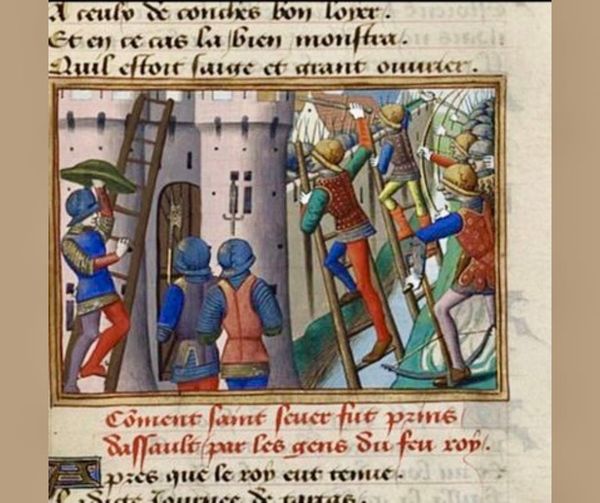 A ceulx de conches bon loyer.
Et en ce cas la bien monstra.
Quil estoit saige et grant ouurier.
Cõment saint seuer fut prins
dassault par les gens du feu roy.
Apres que le roy eut tenue.
La dicte Journee de targas.